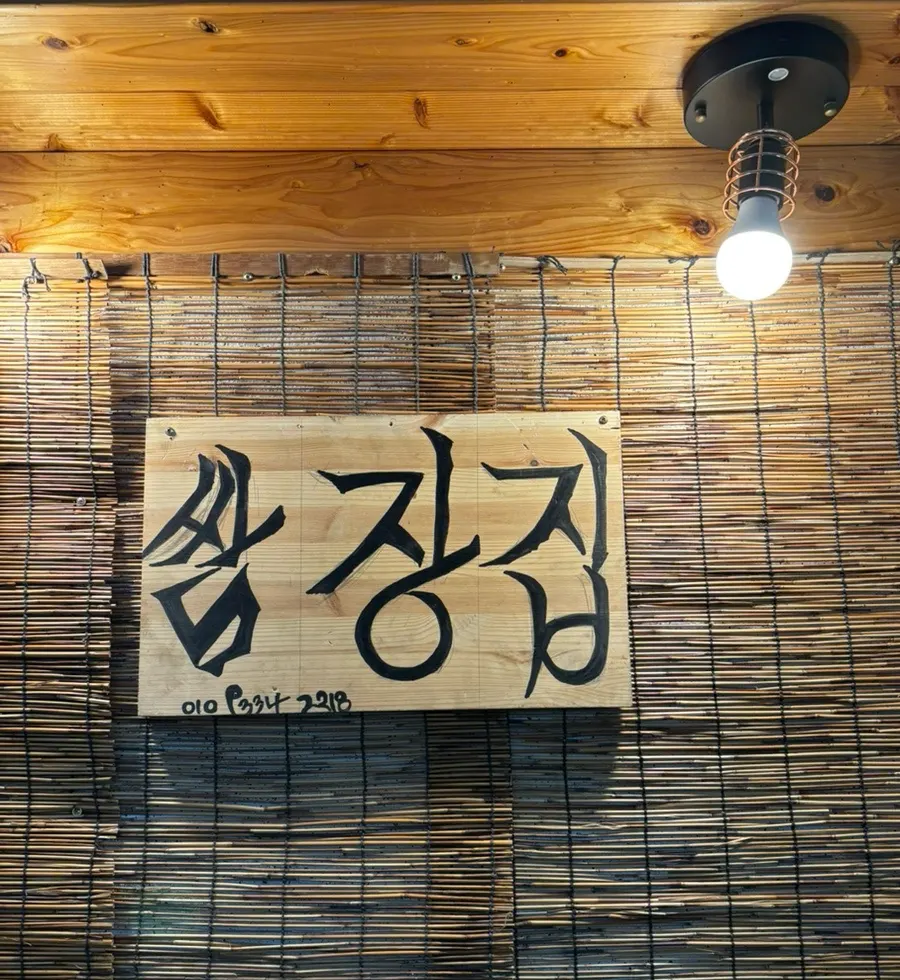 쌈장집
010 8334 2218